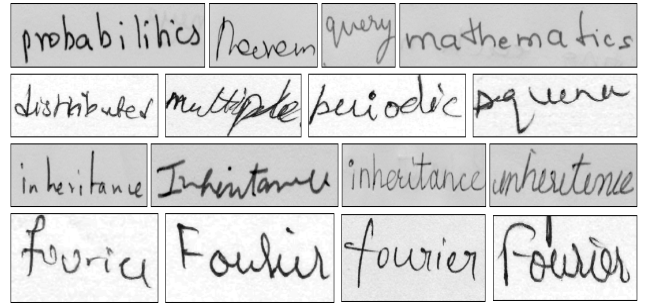 probabilities Theorem query mathematics
distributed multiple periodic sequence
inheritance Inheritance inheritance inheritence
fourier Fourier fourier Fourier